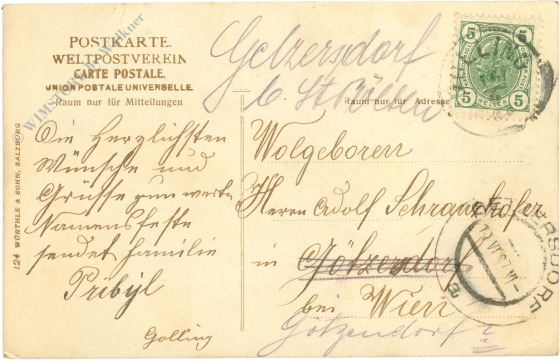 POSTKARTE.
WELTPOSTVEREIN
CARTE POSTALE.
UNION POSTALE UNIVERSELLE.
Raum nur für Mitteilungen
WIMSTORE Walkner
124 WÜRTHLE & SOHN, SALZBURG
Die Herzlichsten
Wünsche und
Grüsse zum werten
Namensfeste
sendet Familie
Pribyl
Golling
Getzersdorf
b. St Pölten
Raum nur für Adresse
5 5
HELLER
5 5
GOLLING
Wolgeboren
Herrn Adolf Schrauzhofer
in Götzendorf
bei Wien
Götzendorf